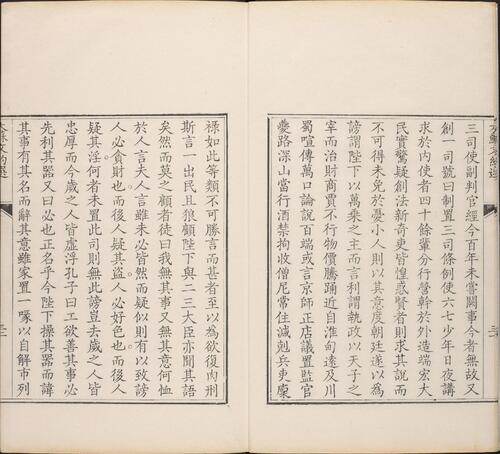 三司使副判官經今百年未嘗闕事今者無故又
創一司號曰制置三司條例使六七少年日夜講
求於內使者四十餘輩分行營幹於外造端宏大
民實驚疑創法新奇吏皆惶惑賢者則求其說而
不可得未免於憂小人則以其意度朝廷遂以為
謗謂陛下以萬乘之主而言利謂執政以天子之
宰而治財商賈不行物價騰踊近自淮甸遠及川
蜀喧傳萬口論說百端或言京師正店議置監官
夔路深山當行酒禁拘收僧尼常住減剋兵吏廩
祿如此等類不可勝言而甚者至以為欲復肉刑
斯言一出民且狼顧陛下與二三大臣亦聞其語
矣然而莫之顧者徒曰我無其事又無其意何恤
於人言夫人言雖未必皆然而疑似則有以致謗
人必貪財也而後人疑其盜人必好色也而後人
疑其淫何者未置此司則無此謗豈去歲之人皆
忠厚而今歲之人皆虛浮孔子曰工欲善其事必
先利其器又曰必也正名乎今陛下操其器而諱
其事有其名而辭其意雖家置一喙以自解市列